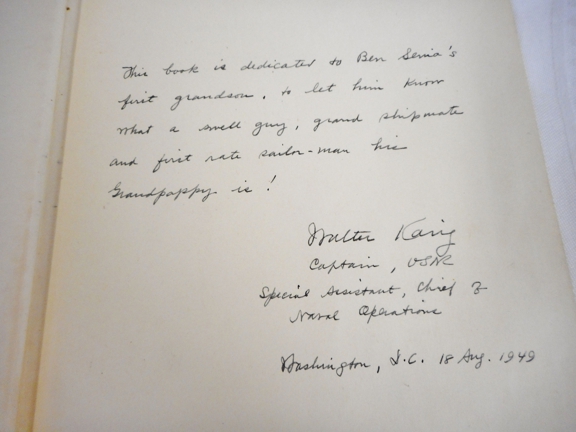 This book is dedicated to Ben Senia's
first grandson, to let him know
what a swell guy, grand shipmate
and first rate sailor-man his
Grandpappy is!
Walter Karig
Captain, USNR
Special Assistant, Chief of
Naval Operations
Washington, D.C. 18 Aug. 1949